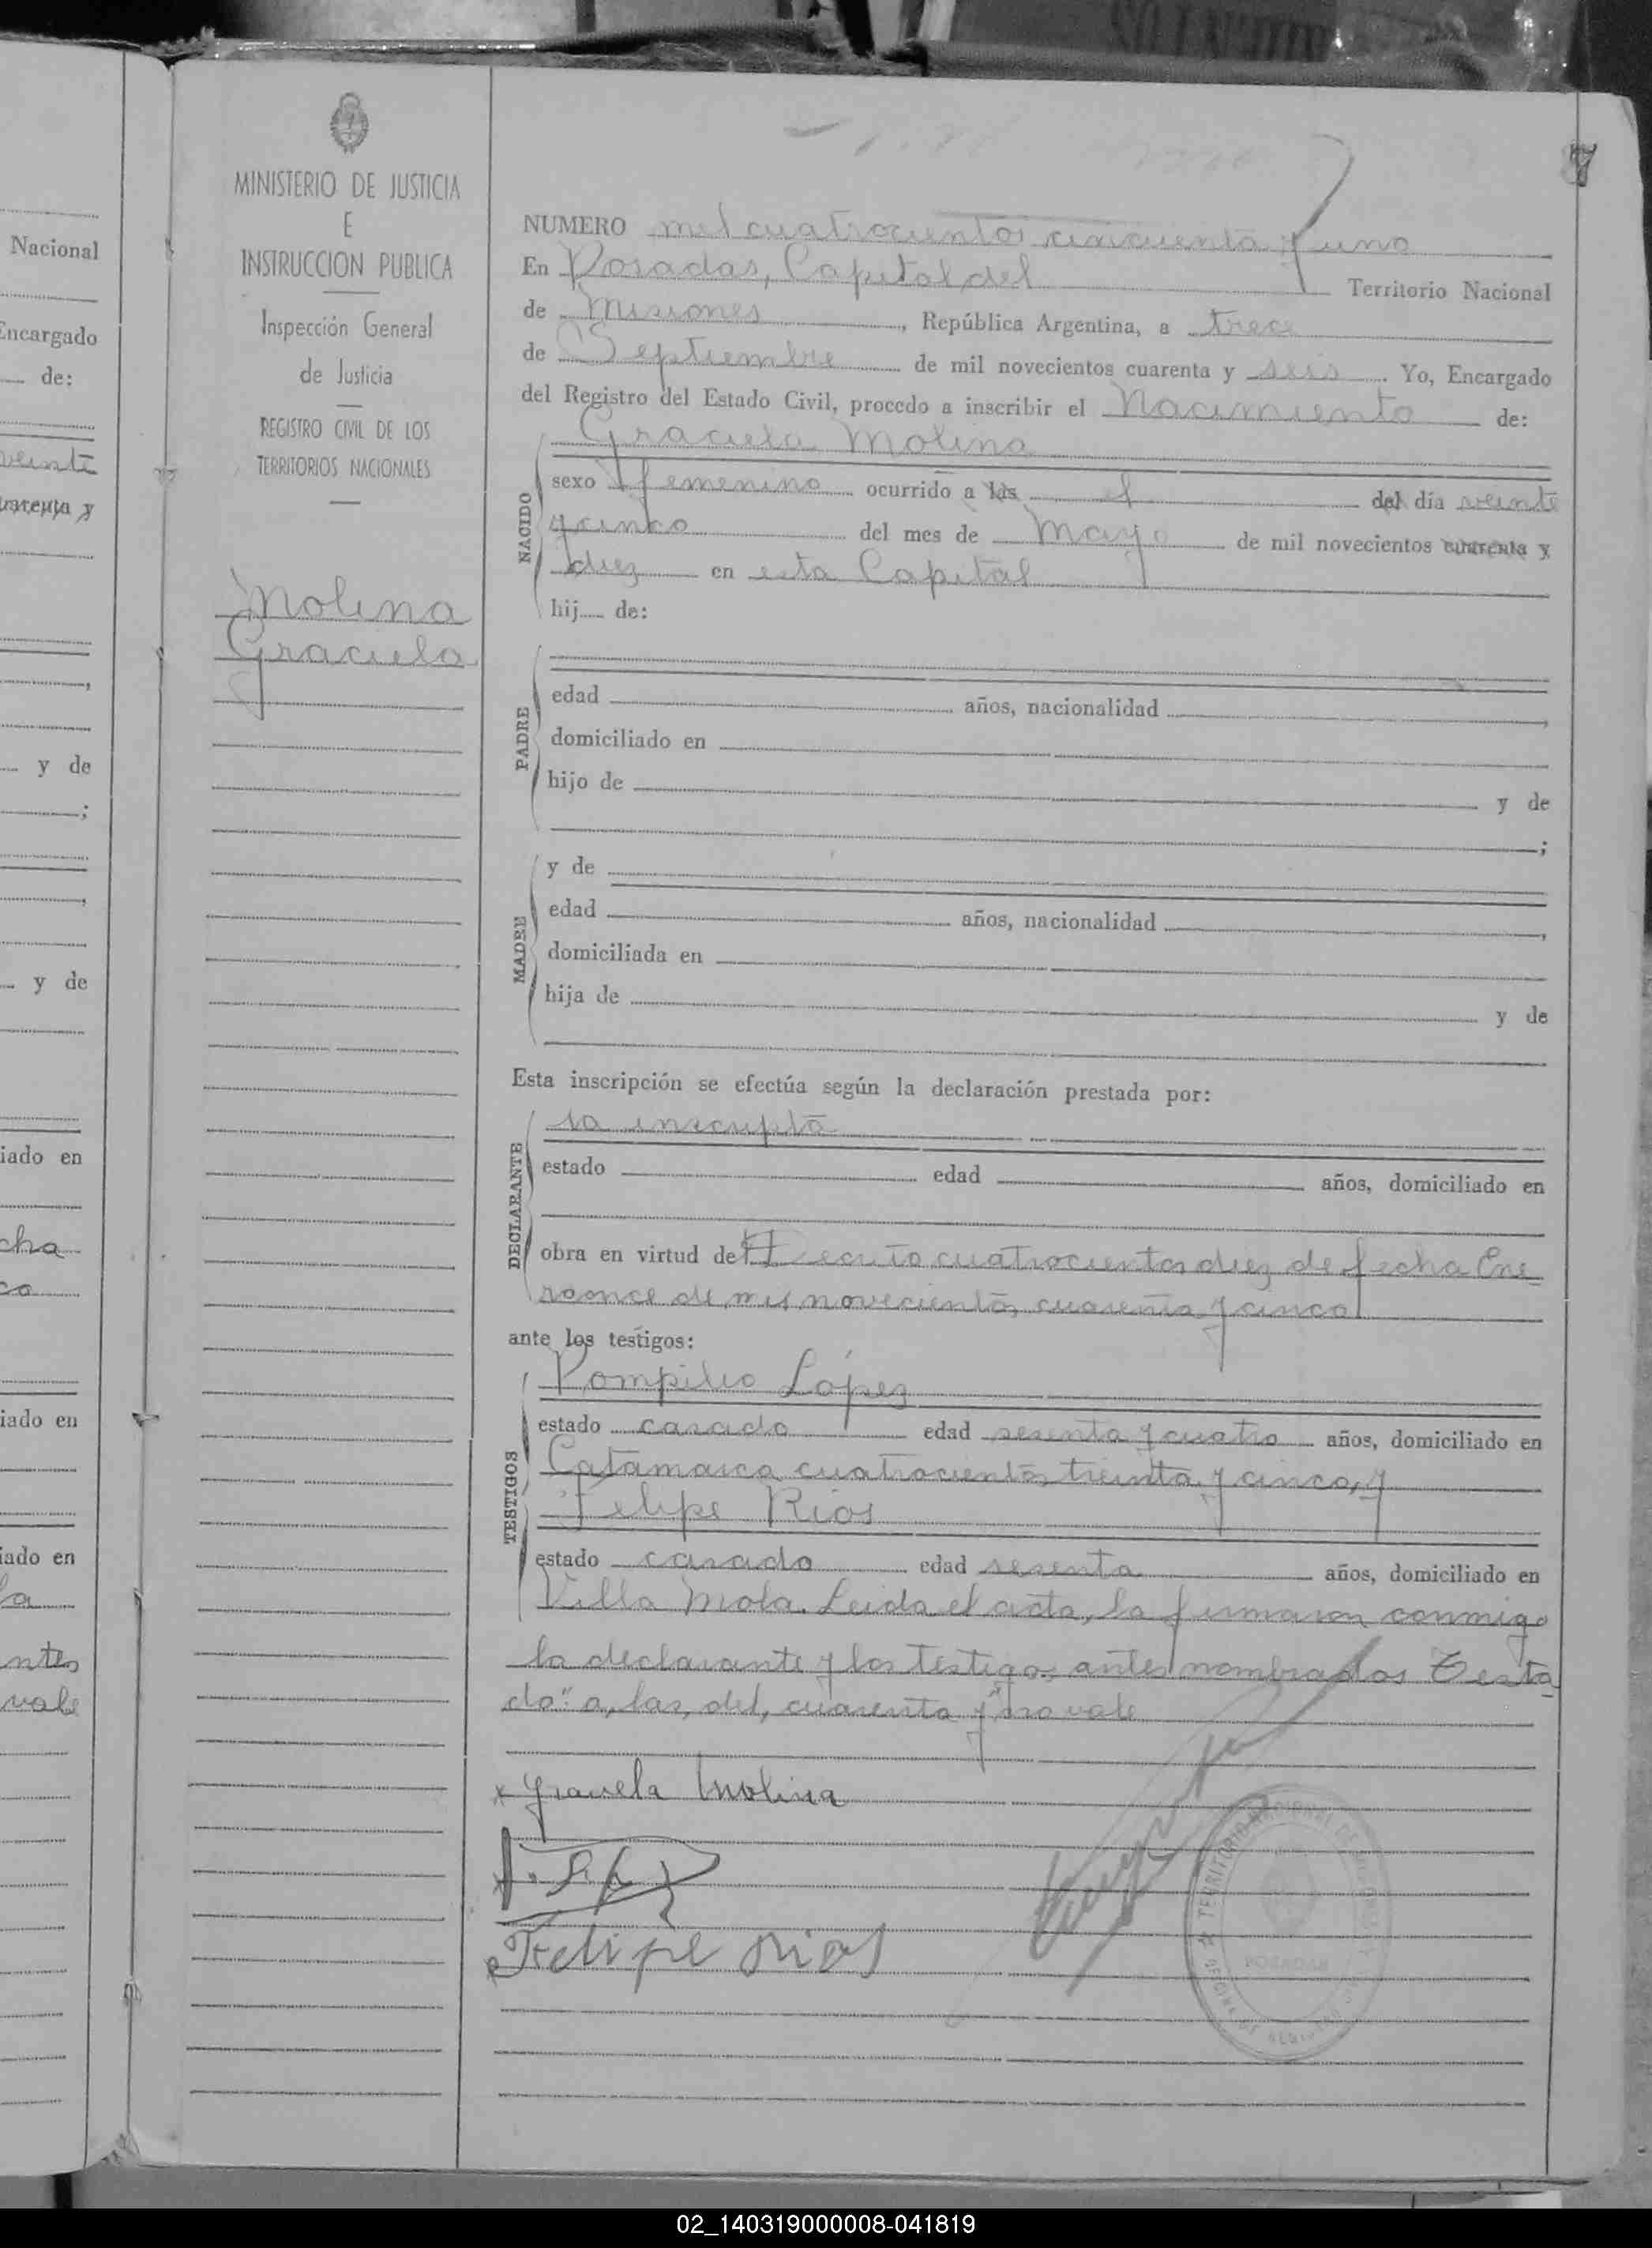 MINISTERIO DE JUSTICIA
E
INSTRUCCION PUBLICA
Inspección General
de Justicia
REGISTRO CIVIL DE LOS
TERRITORIOS NACIONALES
Molina
Graciela
Nacional
Encargado
de:
veinte
cuarenta y
y de
;
y de
iado en
cha
co
iado en
iado en
la
ntes
vale
7
NUMERO mil cuatrocientos cincuenta y uno
En Posadas, Capital del Territorio Nacional
de Misiones, República Argentina, a trece
de Septiembre de mil novecientos cuarenta y seis. Yo, Encargado
del Registro del Estado Civil, procedo a inscribir el Nacimiento de:
Graciela Molina
NACIDO
sexo femenino ocurrido a las el del día veinte
y cinco del mes de Mayo de mil novecientos cuarenta y
diez en esta Capital
hij de:
PADRE
edad años, nacionalidad ,
domiciliado en
hijo de y de
;
MADRE
y de
edad años, nacionalidad ,
domiciliada en
hija de y de
Esta inscripción se efectúa según la declaración prestada por:
DECLARANTE
la inscripta
estado edad años, domiciliado en
obra en virtud del Decreto cuatrocientos diez de fecha Ene-
ro once de mil novecientos cuarenta y cinco
ante los testigos:
TESTIGOS
Pompilio López
estado casado edad sesenta y cuatro años, domiciliado en
Catamarca cuatrocientos treinta y cinco, y
Felipe Rios
estado casado edad sesenta años, domiciliado en
Villa Mola. Leida el acta, la firmaron conmigo
la declarante y los testigos antes nombrados Testa-
do: "a, las, del, cuarenta y" no vale
x Graciela Molina
Felipe Rios
TERRITORIO NACIONAL DE MISIONES
POSADAS
02_140319000008-041819